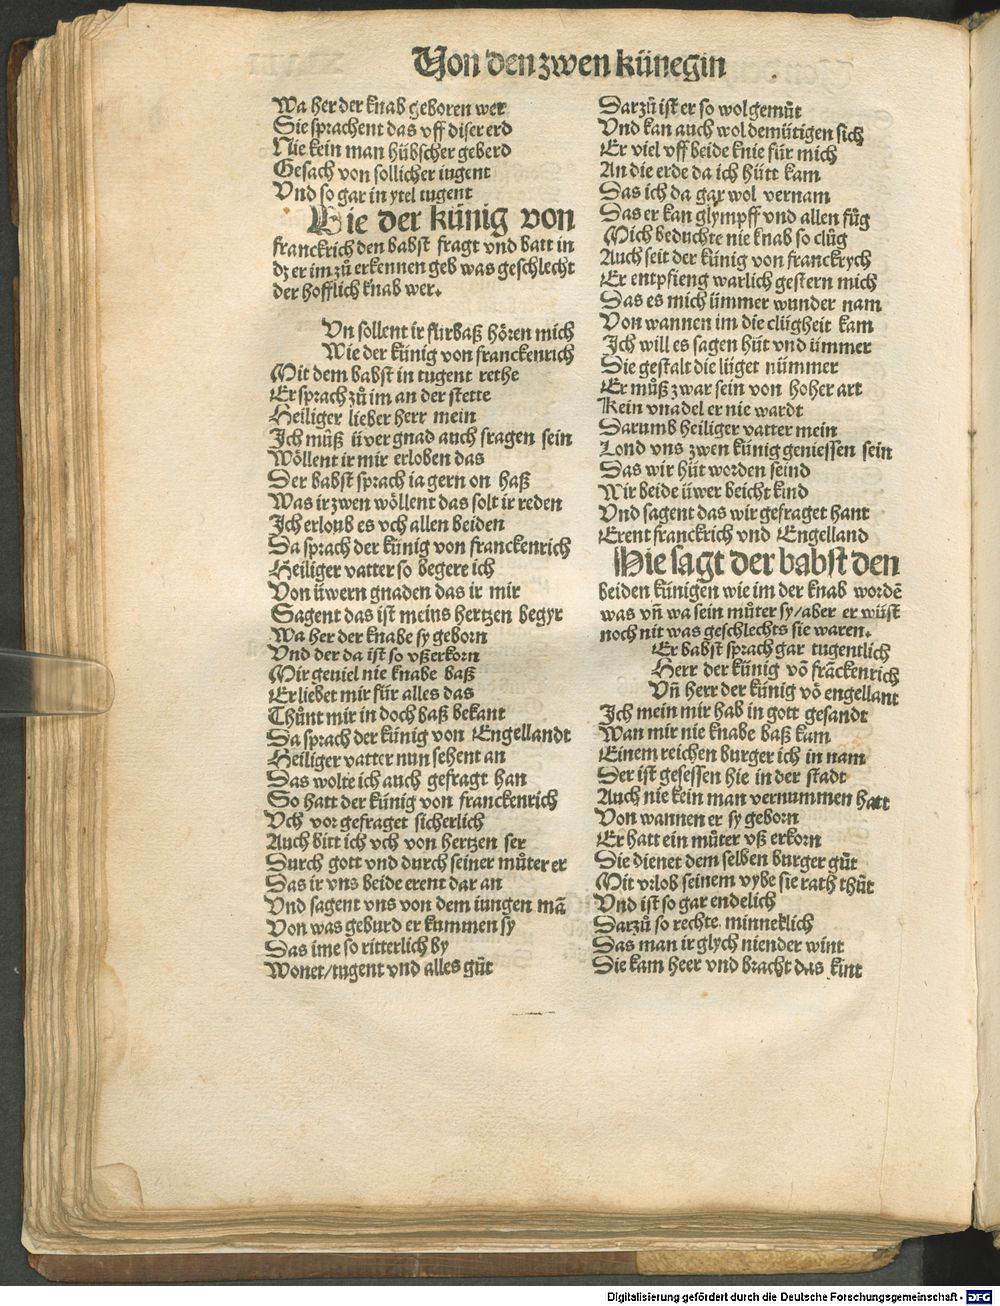 Von den zwen künegin
Wa her der knab geboren wer
Sie sprachent das vff diser erd
Nie kein man hübscher geberd
Gesach von sollicher iugent
Vnd so gar in ytel tugent
Hie der künig von
franckrich den babst fragt vnd batt in
dz er im zů erkennen geb was geschlecht
der hofflich knab wer.
Vn sollent ir furbaß hören mich
Wie der künig von franckenrich
Mit dem babst in tugent rethe
Er sprach zů im an der stette
Heiliger lieber herr mein
Ich můß üver gnad auch fragen sein
Wöllent ir mir erloben das
Der babst sprach ia gern on haß
Was ir zwen wöllent das solt ir reden
Ich erloub es vch allen beiden
Da sprach der künig von franckenrich
Heiliger vatter so begere ich
Von üwern gnaden das ir mir
Sagent das ist meins hertzen begyr
Wa her der knabe sy geborn
Vnd der da ist so vßerkorn
Mir geviel nie knabe baß
Er liebet mir für alles das
Thůnt mir in doch baß bekant
Da sprach der künig von Engellandt
Heiliger vatter nun sehent an
Das wolte ich auch gefragt han
So hatt der künig von franckenrich
Vch vor gefraget sicherlich
Auch bitt ich vch von hertzen ser
Durch gott vnd durch seiner můter er
Das ir vns beide erent dar an
Vnd sagent vns von dem iungen mā
Von was geburd er kummen sy
Das ime so ritterlich by
Wonet/tugent vnd alles gůt
Darzů ist er so wol gemůt
Vnd kan auch wol demütigen sich
Er viel vff beide knie für mich
An die erde da ich hütt kam
Das ich da gar wol vernam
Das er kan glympff vnd allen fůg
Mich beduchte nie knab so clůg
Auch seit der künig von franckrych
Er entpfieng warlich gestern mich
Das es mich ümmer wunder nam
Von wannen im die clügheit kam
Ich will es sagen hüt vnd ümmer
Die gestalt die lüget nümmer
Er můß zwar sein von hoher art
Kein vnadel er nie wardt
Darumb heiliger vatter mein
Lond vns zwen künig geniessen sein
Das wir hüt worden seind
Wir beide üwer beicht kind
Vnd sagent das wir gefraget hant
Erent franckrich vnd Engelland
Hie sagt der babst den
beiden künigen wie im der knab wordē
was vn̄ wa sein můter sy/aber er wüst
noch nit was geschlechts sie waren.
Er babst sprach gar tugentlich
Herr der künig vō frāckenrich
Vn̄ herr der künig vō engellant
Ich mein mir hab in gott gesandt
Wan mir nie knabe baß kam
Einem reichen burger ich in nam
Der ist gesessen hie in der stadt
Auch nie kein man vernummen hatt
Von wannen er sy geborn
Er hatt ein můter vß erkorn
Die dienet dem selben burger gůt
Mit vrlob seinem vybe sie rath thůt
Vnd ist so gar endelich
Darzů so rechte minneklich
Das man ir glych niender wint
Die kam heer vnd bracht das kint
Digitalisierung gefördert durch die Deutsche Forschungsgemeinschaft - DFG